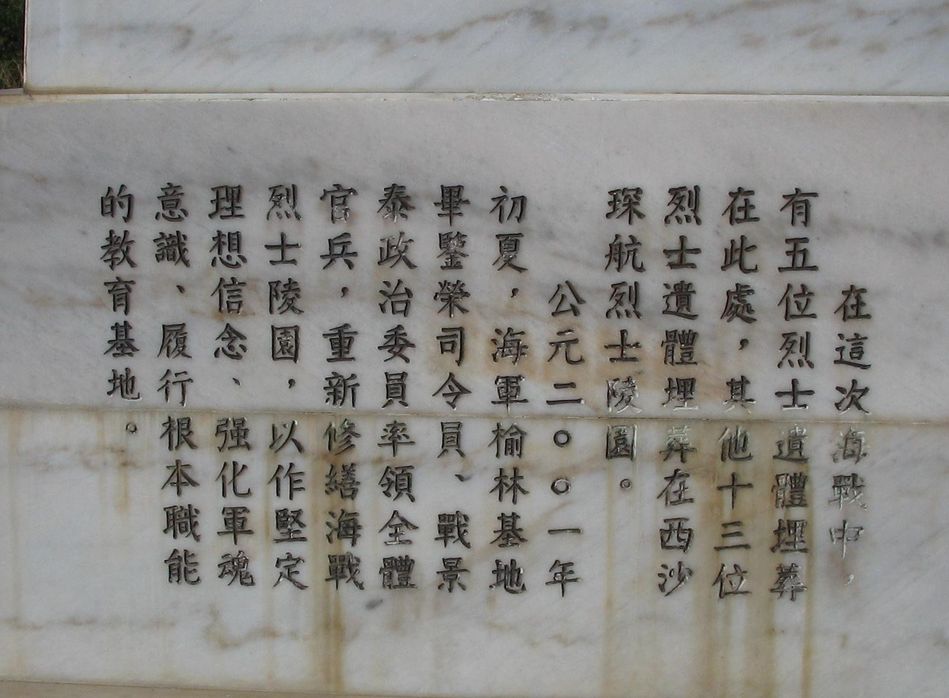 在這次海戰中，
有五位烈士遺體埋葬
在此處，其他十三位
烈士遺體埋葬在西沙
琛航烈士陵園。
公元二〇〇一年
初夏，海軍榆林基地
畢鑒榮司令員、戰景
泰政治委員率領全體
官兵，重新修繕海戰
烈士陵園，以作堅定
理想信念、强化軍魂
意識、履行根本職能
的教育基地。